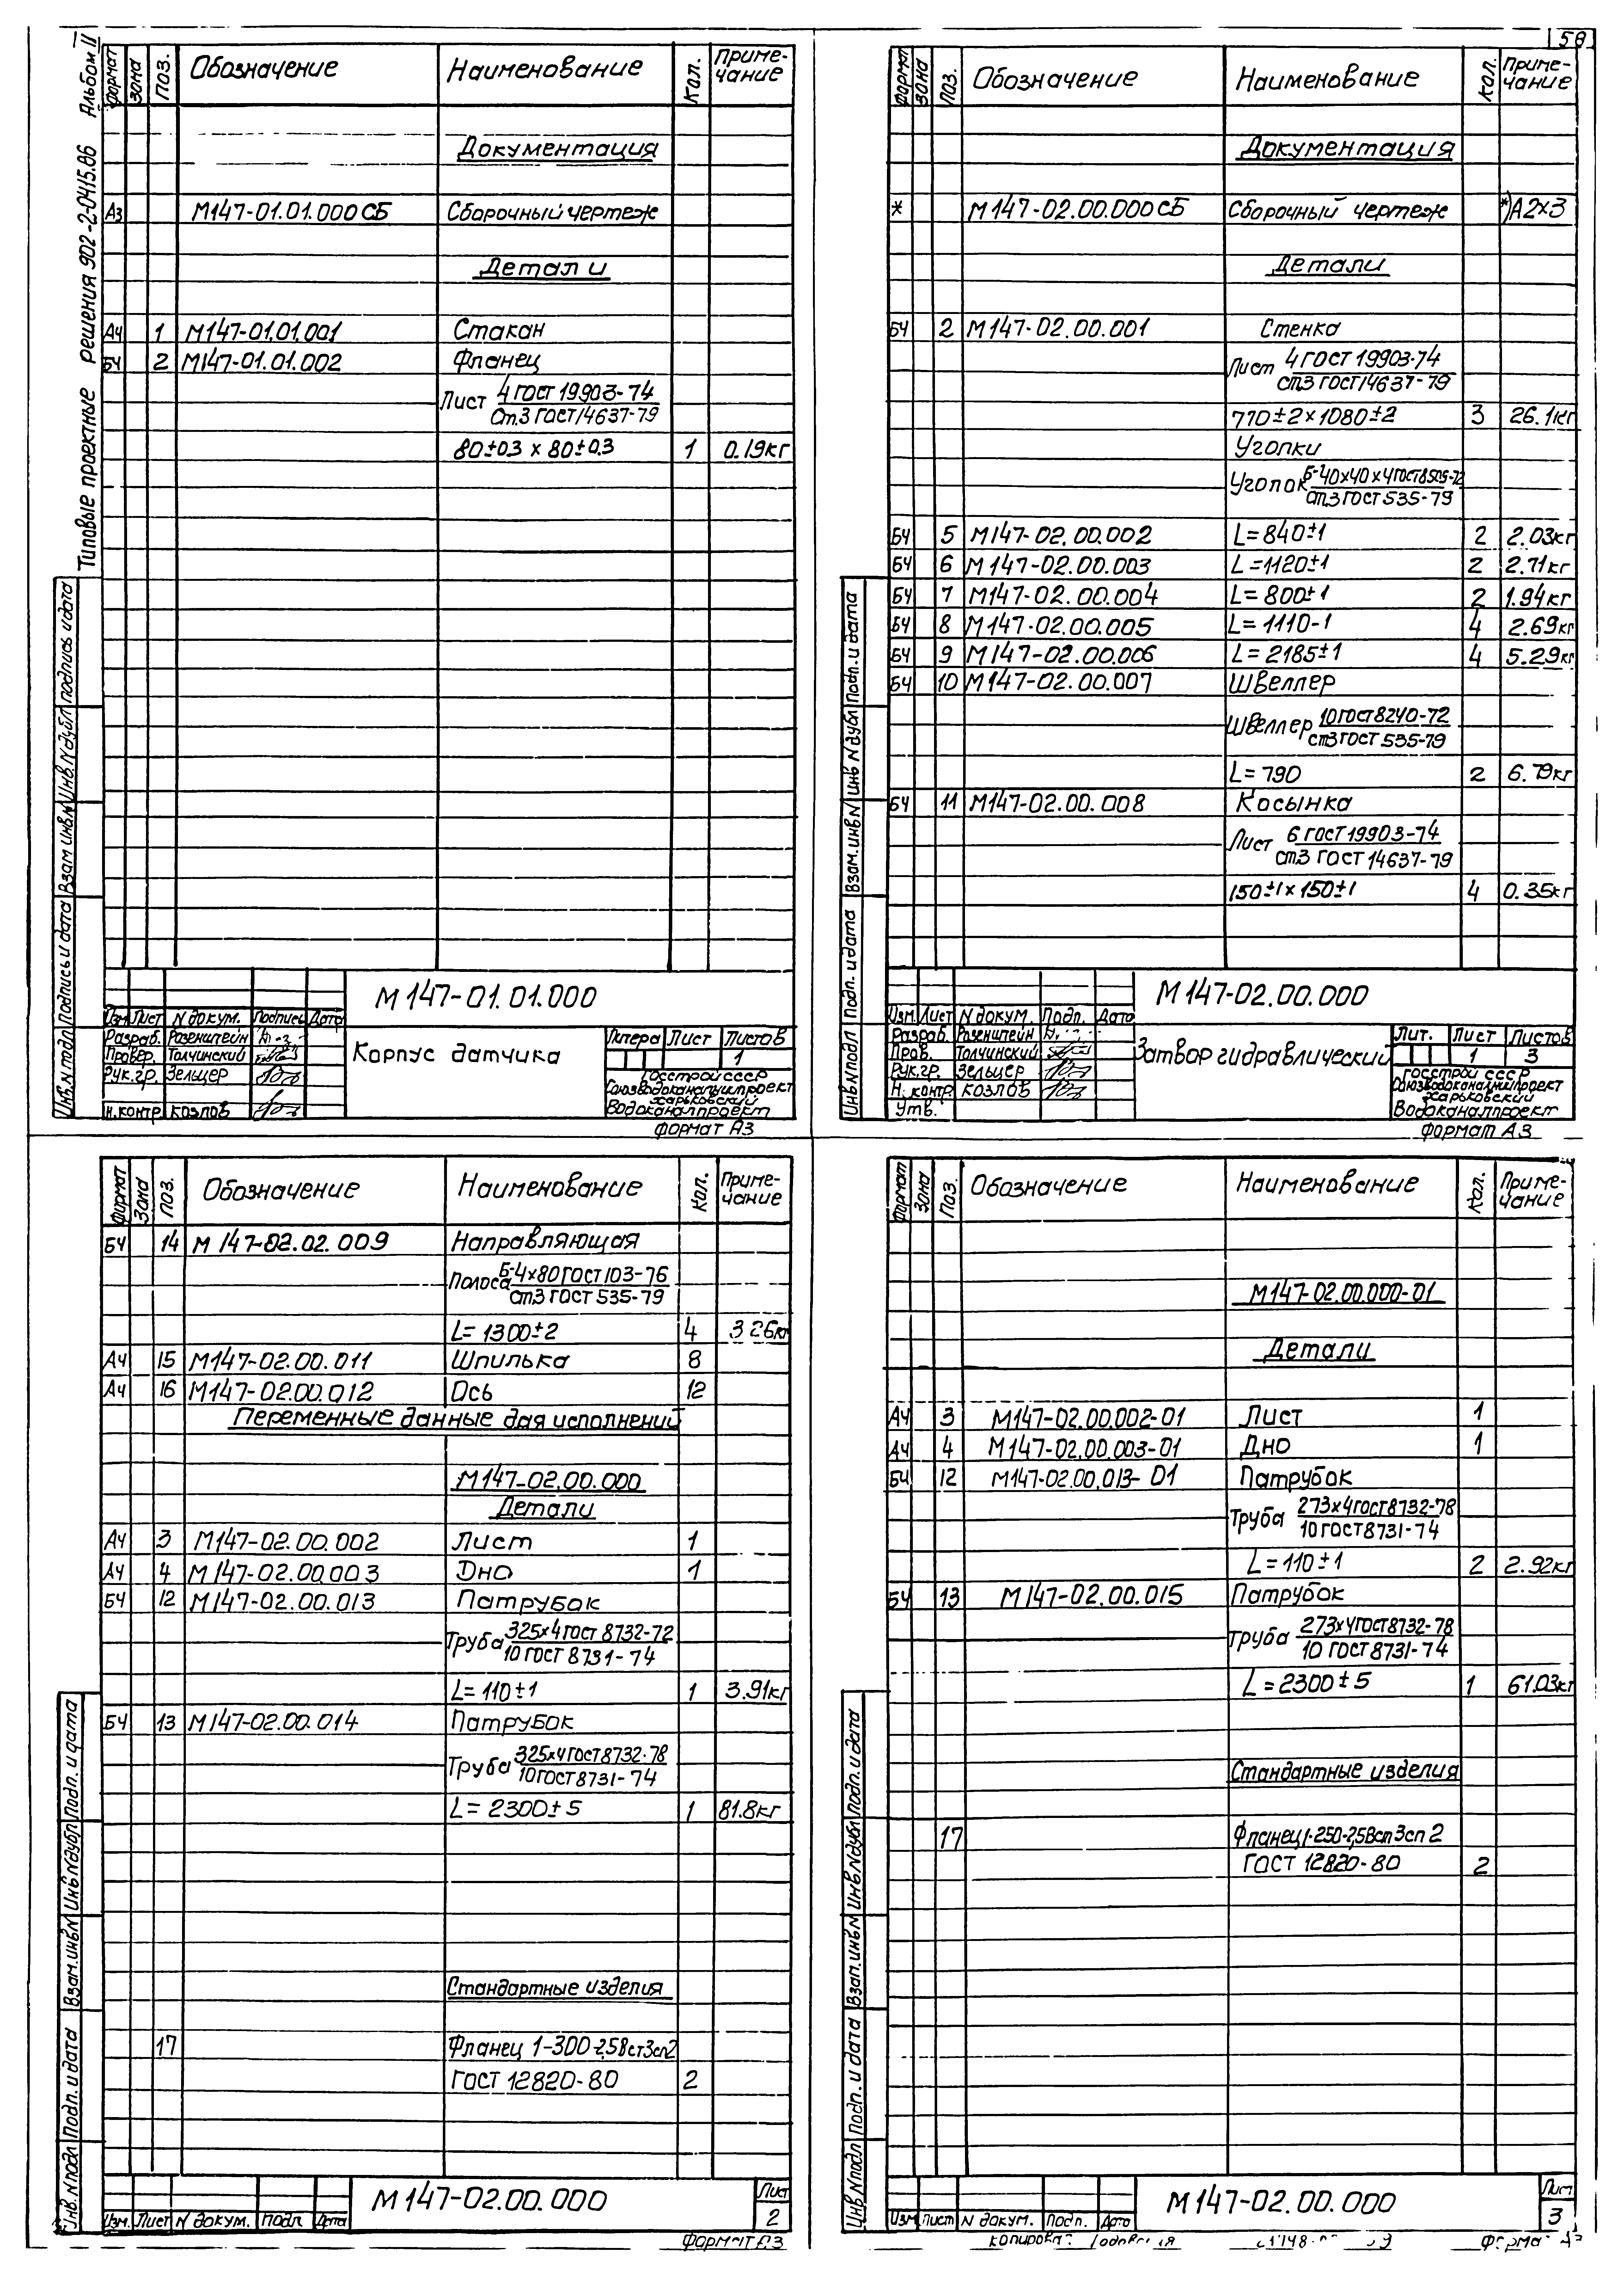 58
Типовые проектные решения 902-2-0415.86 Альбом II
Формат Зона Поз. Обозначение Наименование Кол. Приме-
чание
Документация
А3 М147-01.01.000 СБ Сборочный чертеж
Детали
А4 1 М147-01.01.001 Стакан
БЧ 2 М147-01.01.002 Фланец
Лист 4 ГОСТ 19903-74
Ст.3 ГОСТ 14637-79
80±0.3 х 80±0.3 1 0.19кг
Инв.N подл Подпись и дата Взам инв.N Инв.N дубл подпись и дата
М147-01.01.000
Изм Лист N докум. Подпись Дата
Разраб. Розенштейн
Провер. Толчинский
Рук.гр. Зельцер
Н.контр Козлов
Корпус датчика
Литера Лист Листов
1
Госстрой СССР
Союзводоканалниипроект
Харьковский
Водоканалпроект
Формат А3
Формат Зона Поз. Обозначение Наименование Кол. Приме-
чание
Документация
* М147-02.00.000 СБ Сборочный чертеж *)А2х3
Детали
БЧ 2 М147-02.00.001 Стенка
Лист 4 ГОСТ 19903-74
ст.3 ГОСТ 14637-79
770±2х1080±2 3 26.1кг
Уголки
Уголок Б-40х40х4 ГОСТ 8509-72
ст.3 ГОСТ 535-79
БЧ 5 М147-02.00.002 L=840±1 2 2.03кг
БЧ 6 М147-02.00.003 L=1120±1 2 2.71кг
БЧ 7 М147-02.00.004 L=800±1 2 1.94кг
БЧ 8 М147-02.00.005 L=1110-1 4 2.69кг
БЧ 9 М147-02.00.006 L=2185±1 4 5.29кг
БЧ 10 М147-02.00.007 Швеллер
Швеллер 10 ГОСТ 8240-72
ст3 ГОСТ 535-79
L=790 2 6.79кг
БЧ 11 М147-02.00.008 Косынка
Лист 6 ГОСТ 19903-74
ст.3 ГОСТ 14637-79
150±1х150±1 4 0.35кг
Инв N подл Подп. и дата Взам. инв N Инв N дубл Подп. и дата
М147-02.00.000
Изм. Лист N докум. Подп. Дата
Разраб. Розенштейн
Пров. Толчинский
Рук.гр. Зельцер
Н. контр. Козлов
Утв.
Затвор гидравлический
Лит. Лист Листов
1 3
Госстрой СССР
Союзводоканалниипроект
Харьковский
Водоканалпроект
Формат А3
Формат Зона Поз. Обозначение Наименование Кол. Приме-
чание
БЧ 14 М147-02.02.009 Направляющая
Полоса Б-4х80 ГОСТ 103-76
ст.3 ГОСТ 535-79
L=1300±2 4 3.26кг
А4 15 М147-02.00.011 Шпилька 8
А4 16 М147-02.00.012 Ось 12
Переменные данные для исполнений
М147-02.00.000
Детали
А4 3 М147-02.00.002 Лист 1
А4 4 М147-02.00.003 Дно 1
БЧ 12 М147-02.00.013 Патрубок
Труба 325х4 ГОСТ 8732-72
10 ГОСТ 8731-74
L=110±1 1 3.91кг
БЧ 13 М147-02.00.014 Патрубок
Труба 325х4 ГОСТ 8732-78
10 ГОСТ 8731-74
L=2300±5 1 81.8кг
Стандартные изделия
17 Фланец 1-300-2,5 Вст3сп2
ГОСТ 12820-80 2
Инв. N подл Подп. и дата Взам. инв N Инв N дубл Подп. и дата
М147-02.00.000
Изм. Лист N докум. Подп Дата
Лист
2
Формат А3
Формат Зона Поз. Обозначение Наименование Кол. Приме-
чание
М147-02.00.000-01
Детали
А4 3 М147-02.00.002-01 Лист 1
А4 4 М147-02.00.003-01 Дно 1
БЧ 12 М147-02.00.013-01 Патрубок
Труба 273х4 ГОСТ 8732-78
10 ГОСТ 8731-74
L=110±1 2 2.92кг
БЧ 13 М147-02.00.015 Патрубок
Труба 273х4 ГОСТ 8732-78
10 ГОСТ 8731-74
L=2300±5 1 61.03кг
Стандартные изделия
17 Фланец 1-250-2,5 Вст3сп2
ГОСТ 12820-80 2
Инв N подл Подп. и дата Взам. инв N Инв N дубл подп. и дата
М147-02.00.000
Изм Лист N докум. Подп. Дата
Лист
3
Формат А3